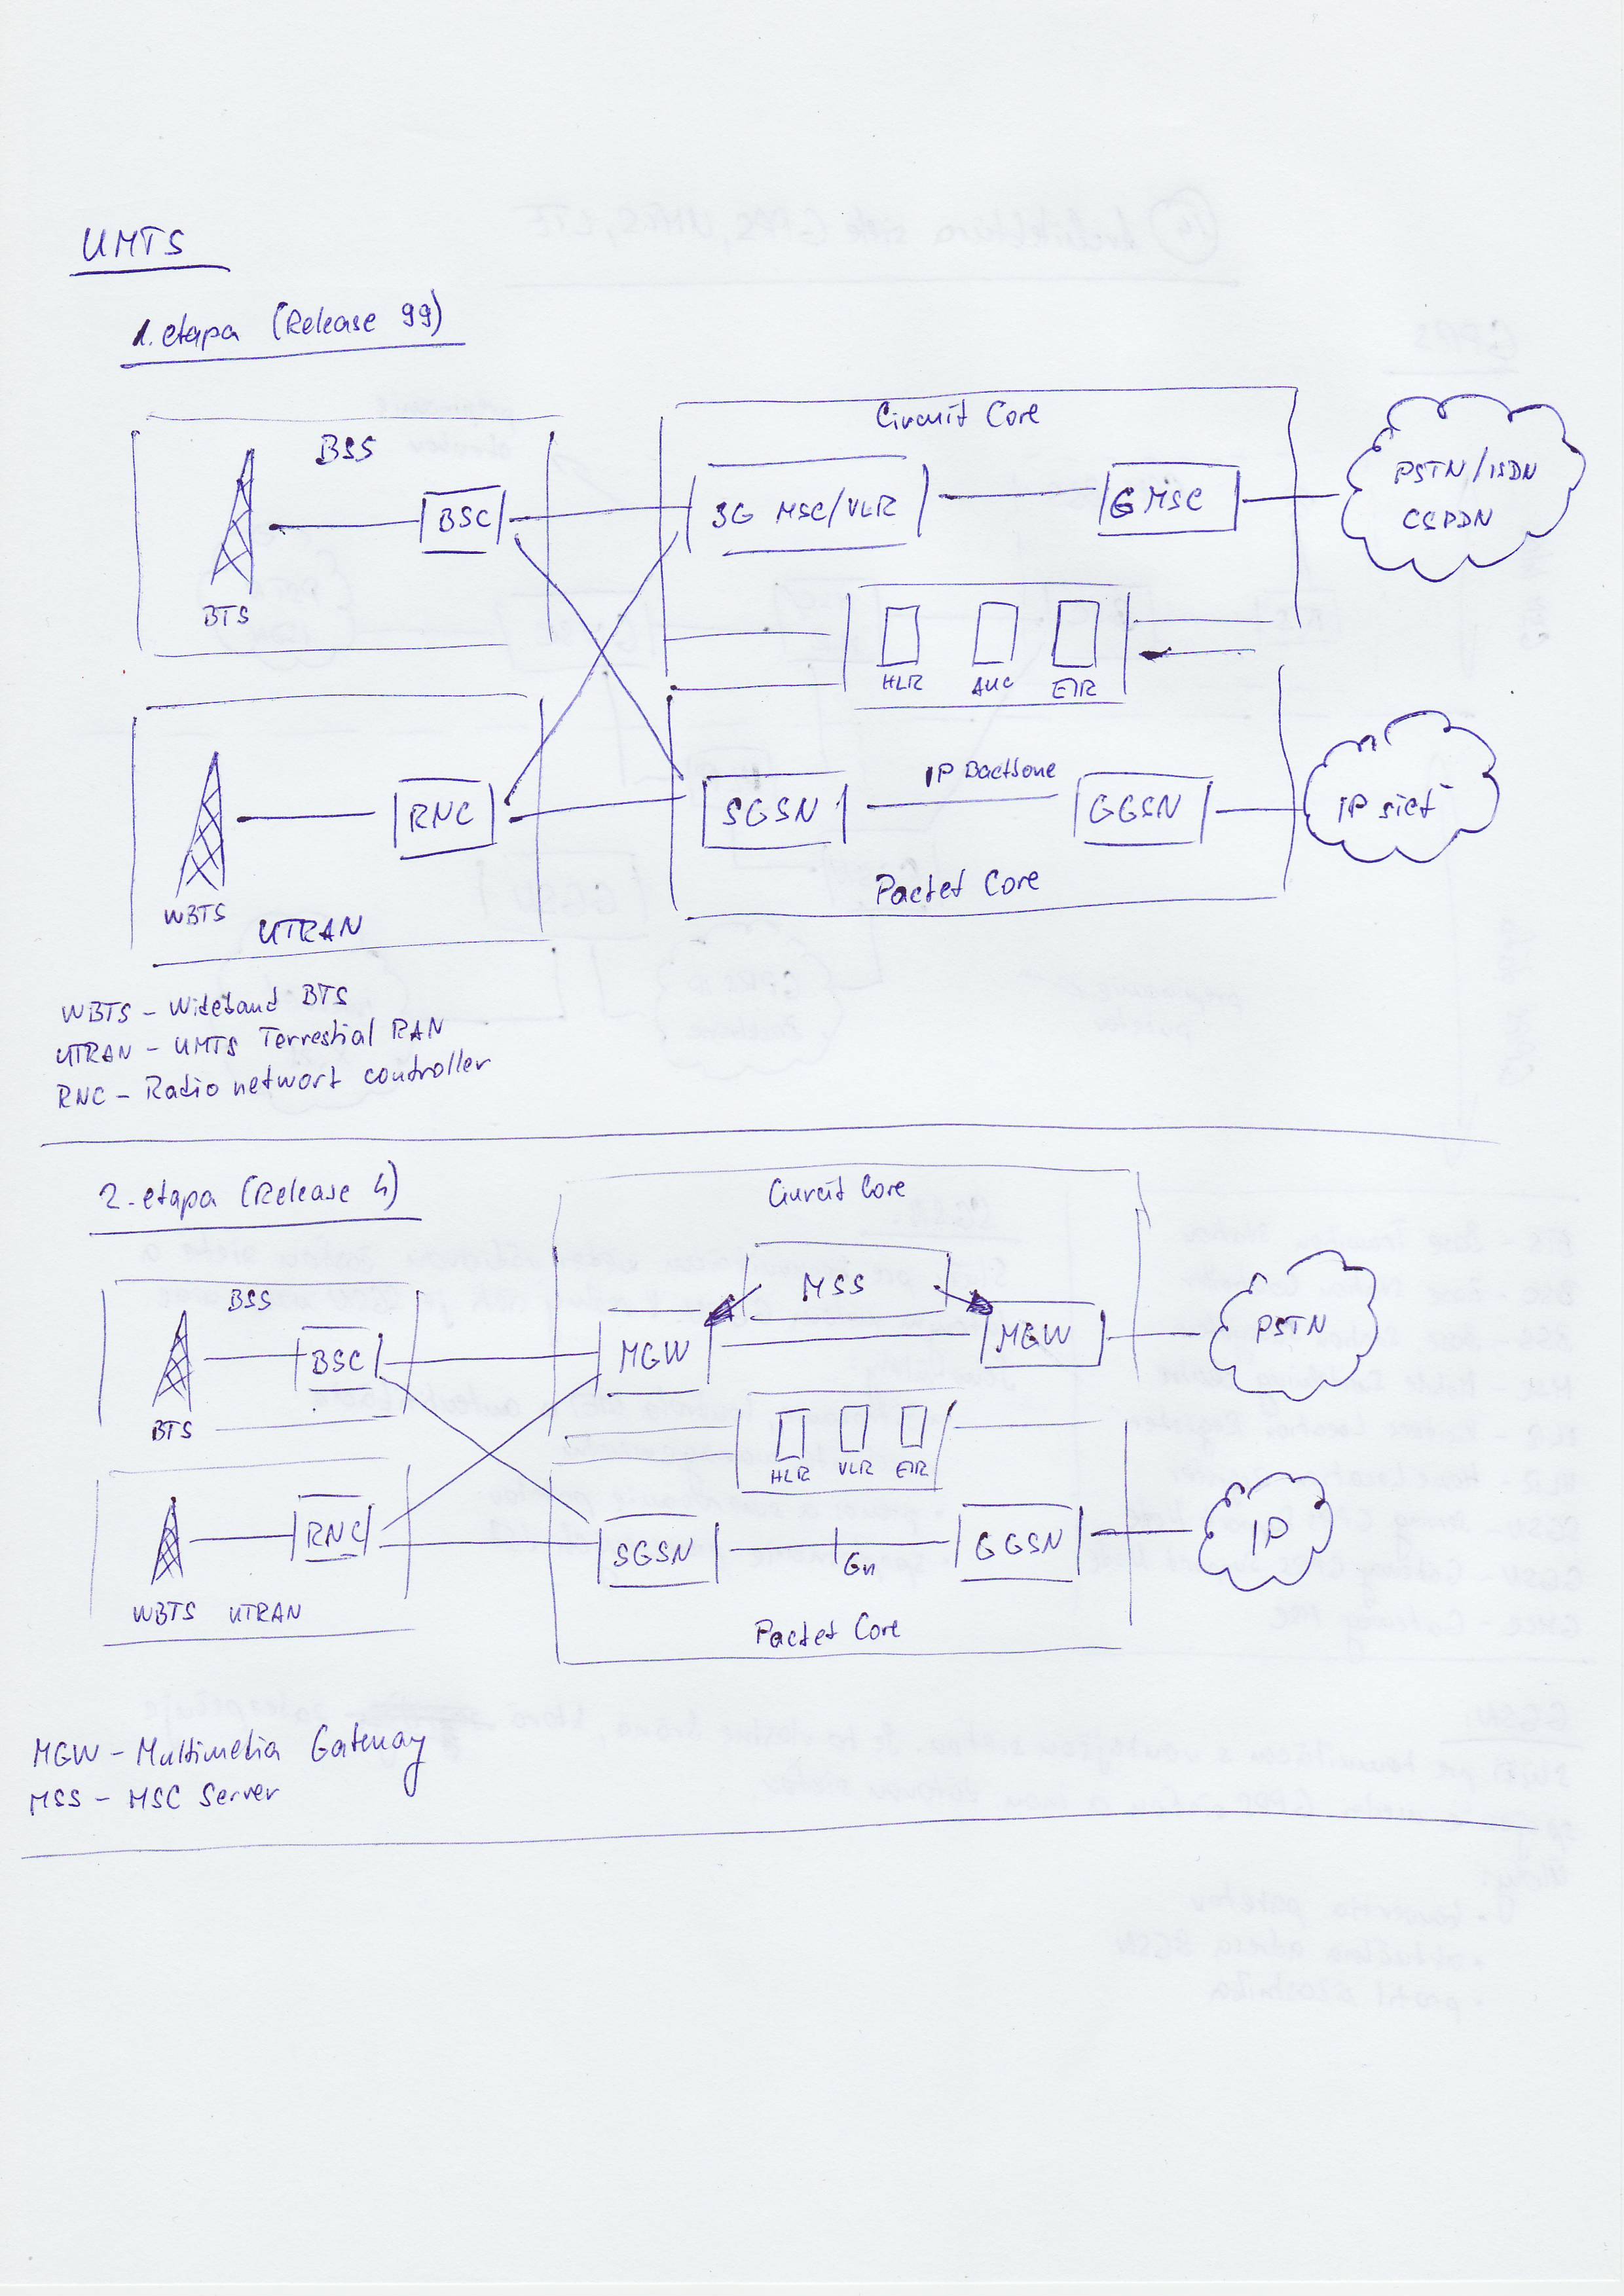 UMTS
1. etapa (Release 99)
Circuit Core
BSS
BSC
3G MSC/VLR
GMSC
PSTN/ISDN
CSPDN
BTS
HLR AUC EIR
RNC
SGSN
IP Backbone
GGSN
IP sieť
WBTS
UTRAN
Packet Core
WBTS - Wideband BTS
UTRAN - UMTS Terrestial RAN
RNC - Radio network controller
2. etapa (Release 4)
Ciurcit Core
BSS
MSS
BSC
MGW
MGW
PSTN
BTS
HLR VLR EIR
RNC
SGSN
Gn
GGSN
IP
WBTS UTRAN
Packet Core
MGW - Multimedia Gateway
MSS - MSC Server